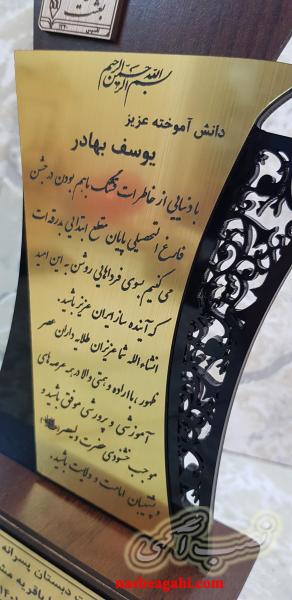 بهشت
بسم الله الرحمن الرحیم
دانش آموخته عزیز
یوسف بهادر
با دنیایی از خاطرات قشنگ باهم بودن در جشن
فارغ التحصیلی پایان مقطع ابتدایی بدرقه ات
می کنیم بسوی فرداهایی روشن به این امید
که آینده ساز ایران عزیز باشید.
انشاءالله شما عزیزان طلایه داران عصر
ظهور، با اراده و همتی والا در همه عرصه های
آموزشی و پرورشی موفق باشید و
موجب خشنودی حضرت ولیعصر
و پشتیبان امامت و ولایت باشید.
دبستان پسرانه
باقریه
نسب آگهی
nasbeagahi.com